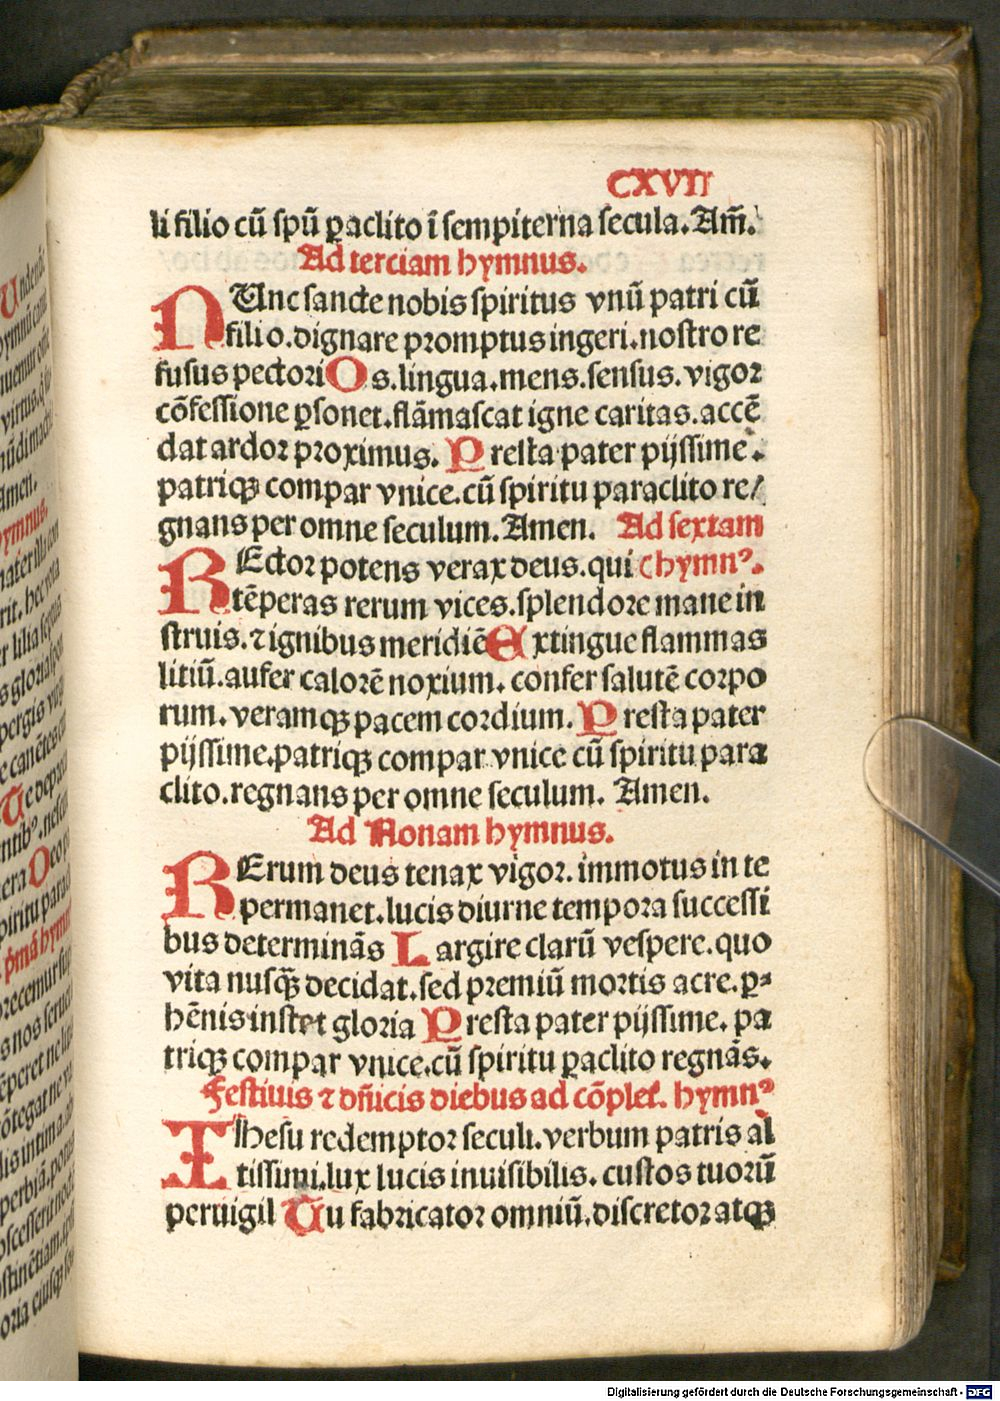 CXVII
li filio cū spū ꝑaclito ī sempiterna secula. Am̄.
Ad terciam hymnus.
NUnc sancte nobis spiritus vnū patri cū
filio. dignare promptus ingeri. nostro re
fusus pectori Os. lingua. mens. sensus. vigor
cōfessione ꝑsonet. flāmascat igne caritas. accē
dat ardor proximus. Presta pater pijssime.
patriqꝫ compar vnice. cū spiritu paraclito re/
gnans per omne seculum. Amen. Ad sextam
REctor potens verax deus. qui (hymnꝰ.
tēperas rerum vices. splendore mane in
struis. ⁊ ignibus meridiē Extingue flammas
litiū. aufer calorē noxium. confer salutē corpo
rum. veramqꝫ pacem cordium. Presta pater
pijssime. patriqꝫ compar vnice cū spiritu para
clito. regnans per omne seculum. Amen.
Ad Nonam hymnus.
RErum deus tenax vigor. immotus in te
permanet. lucis diurne tempora successi
bus determinās Largire clarū vespere. quo
vita nusqꝫ̄ decidat. sed premiū mortis acre. ꝑ⸗
hēnis instet gloria Presta pater pijssime. pa
triqꝫ compar vnice. cū spiritu ꝑaclito regnās.
Festiuis ⁊ dn̄icis diebus ad cōplet. hymnꝰ
IHesu redemptor seculi. verbum patris al
tissimi. lux lucis inuisibilis. custos tuorū
peruigil Tu fabricator omniū. discretor atqꝫ
Digitalisierung gefördert durch die Deutsche Forschungsgemeinschaft - DFG